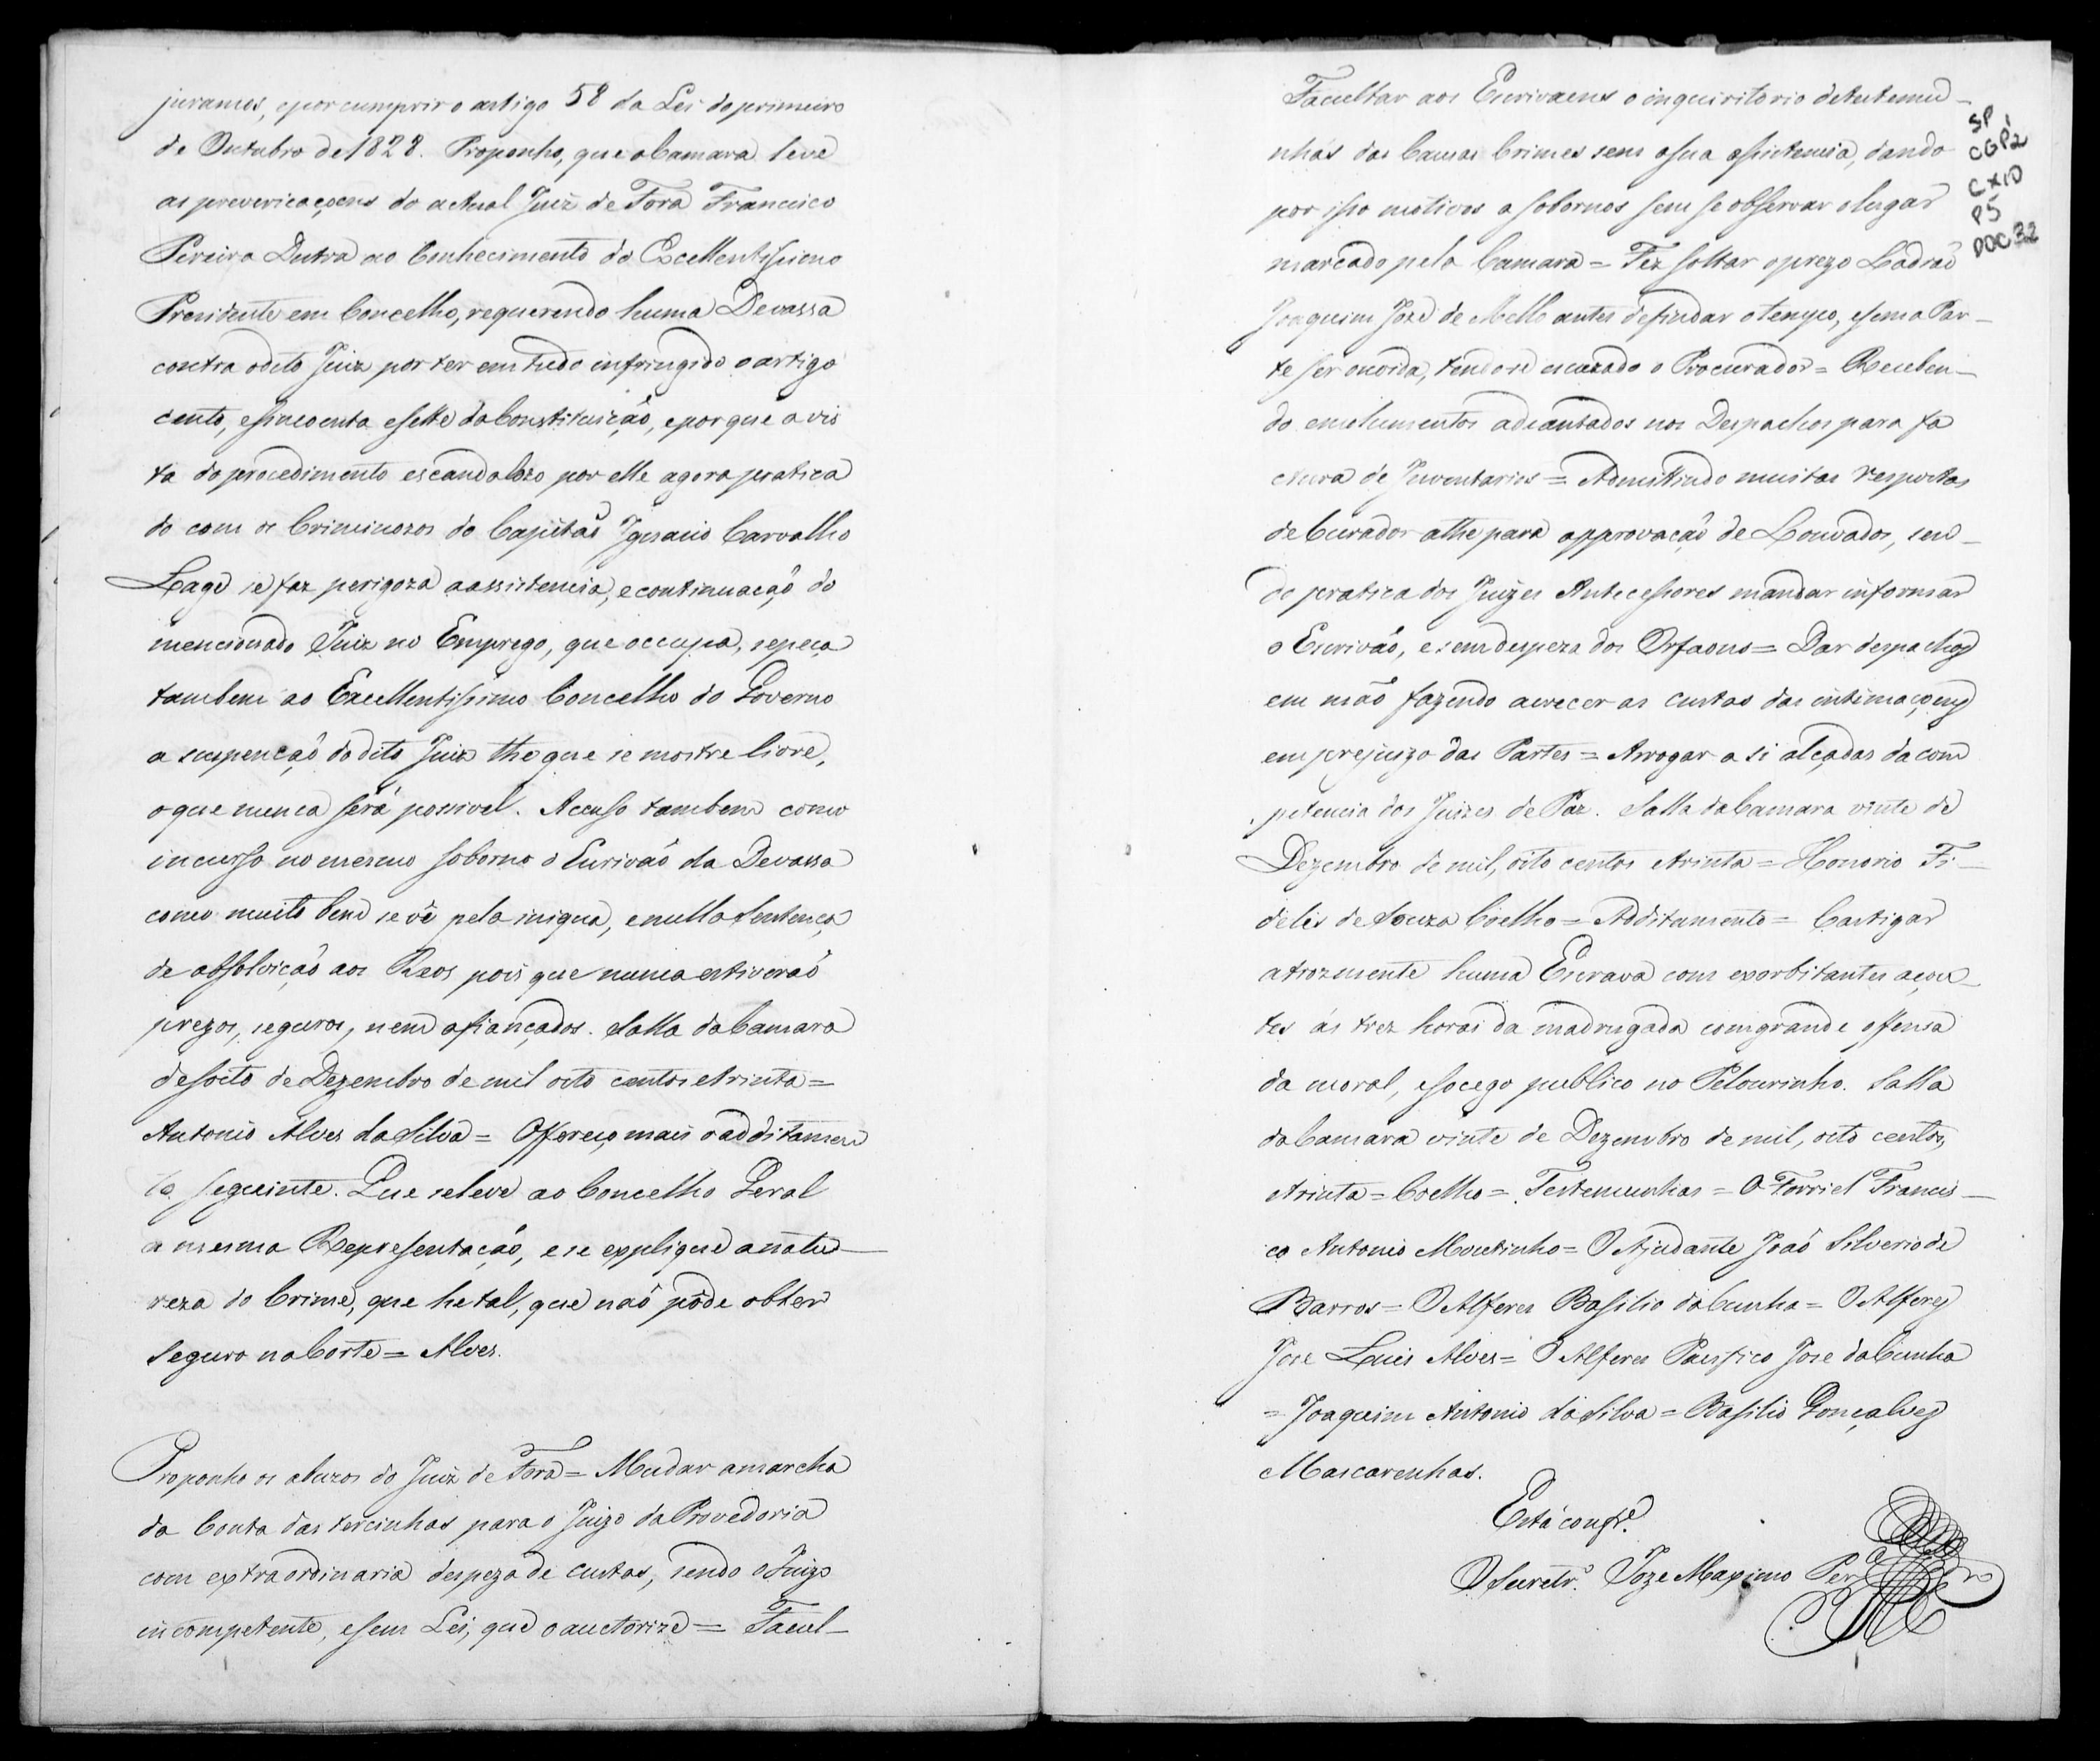 juramos, e por cumprir o artigo 58 da Lei do primeiro
de Outubro de 1828. Proponho, que a Camara leve
as prevericaçoens do actual Juiz de Fora Francisco
Pereira Dutra ao Conhecimento do Excellentissimo
Presidente em Concelho, requerendo huma Devassa
contra o dito Juiz por ter em tudo infringido o artigo
cento, e sincoenta e sette da Constituição, e por que a vis
ta do procedimento escandalozo por elle agora pratica
do com os Criminozos do Capitão Ignacio Carvalho
Lage se faz perigoza a assistencia, e continuação do
mencionado Juiz no Emprego, que occupa, se peça
tambem ao Excellentissimo Concelho do Governo
a suspenção do dito Juiz the que se mostre livre,
o que nunca será possivel. Accuso tambem como
incurso no mesmo soborno o Escrivão da Devassa
como muito bem se vê pela iniqua, e nulla Sentença
de absolvição aos Reos pois que nunca estiverão
prezos, seguros, nem afiançados. Salla da Camara
desoito de Dezembro de mil oito centos e trinta =
Antonio Alves da Silva = Offereço mais o additamen
to seguinte. Que se leve ao Concelho Geral
a mesma Representação, e se explique a natu-
reza do Crime, que he tal, que não pôde obter
Seguro na Corte = Alves.
Proponho os abuzos do Juiz de Fora = Mudar a marcha
da Conta das tercinhas para o Juizo da Provedoria
com extraordinaria despeza de custas, sendo o Juizo
incompetente, e sem Lei, que o auctorize = Facul-
Facultar aos Escrivaens o inquiritorio de testemu-
nhas das Causas Crimes sem a sua assistencia, dando
por isso motivos a sobornos sem se observar o lugar
marcado pela Camara = Fez soltar o prezo Ladrão
Joaquim José de Mello antes de findar o tempo, e sem a Par-
te ser ouvida, tendo-se escuzado o Procurador = Receben-
do emolumentos adeantados nos Despachos para fa
ctura de Inventarios = Admittindo muitas respostas
de Curador athe para approvação de Louvados, sen-
do pratica dos Juizes Antecessores mandar informar
o Escrivão, e sem despeza dos Orfaons = Dar despachos
em mão fazendo acrecer as custas das intimaçoens
em prejuizo das Partes = Arrogar a si alçadas da com
petencia dos Juizes de Paz. Salla da Camara vinte de
Dezembro de mil, oito centos e trinta = Honorio Fi-
delis de Souza Coelho = Additamento = Castigar
atrozmente huma Escrava com exorbitantes açou-
tes ás trez horas da madrugada com grande offensa
da moral, e socego publico no Pelourinho. Salla
da Camara vinte de Dezembro de mil, oito centos,
e trinta = Coelho = Testemunhas = O Forriel Francis-
co Antonio Moutinho = O Ajudante João Silverio de
Barros = O Alferes Basilio da Cunha = O Alferes
Jose Luis Alves = O Alferes Pacifico Jose da Cunha
= Joaquim Antonio da Silva = Basilio Gonçalves
Mascarenhas.
Está confr.e
O Secretr.o Joze Maximo Per.a
SP 1
CGP2
CX10
P5
DOC32